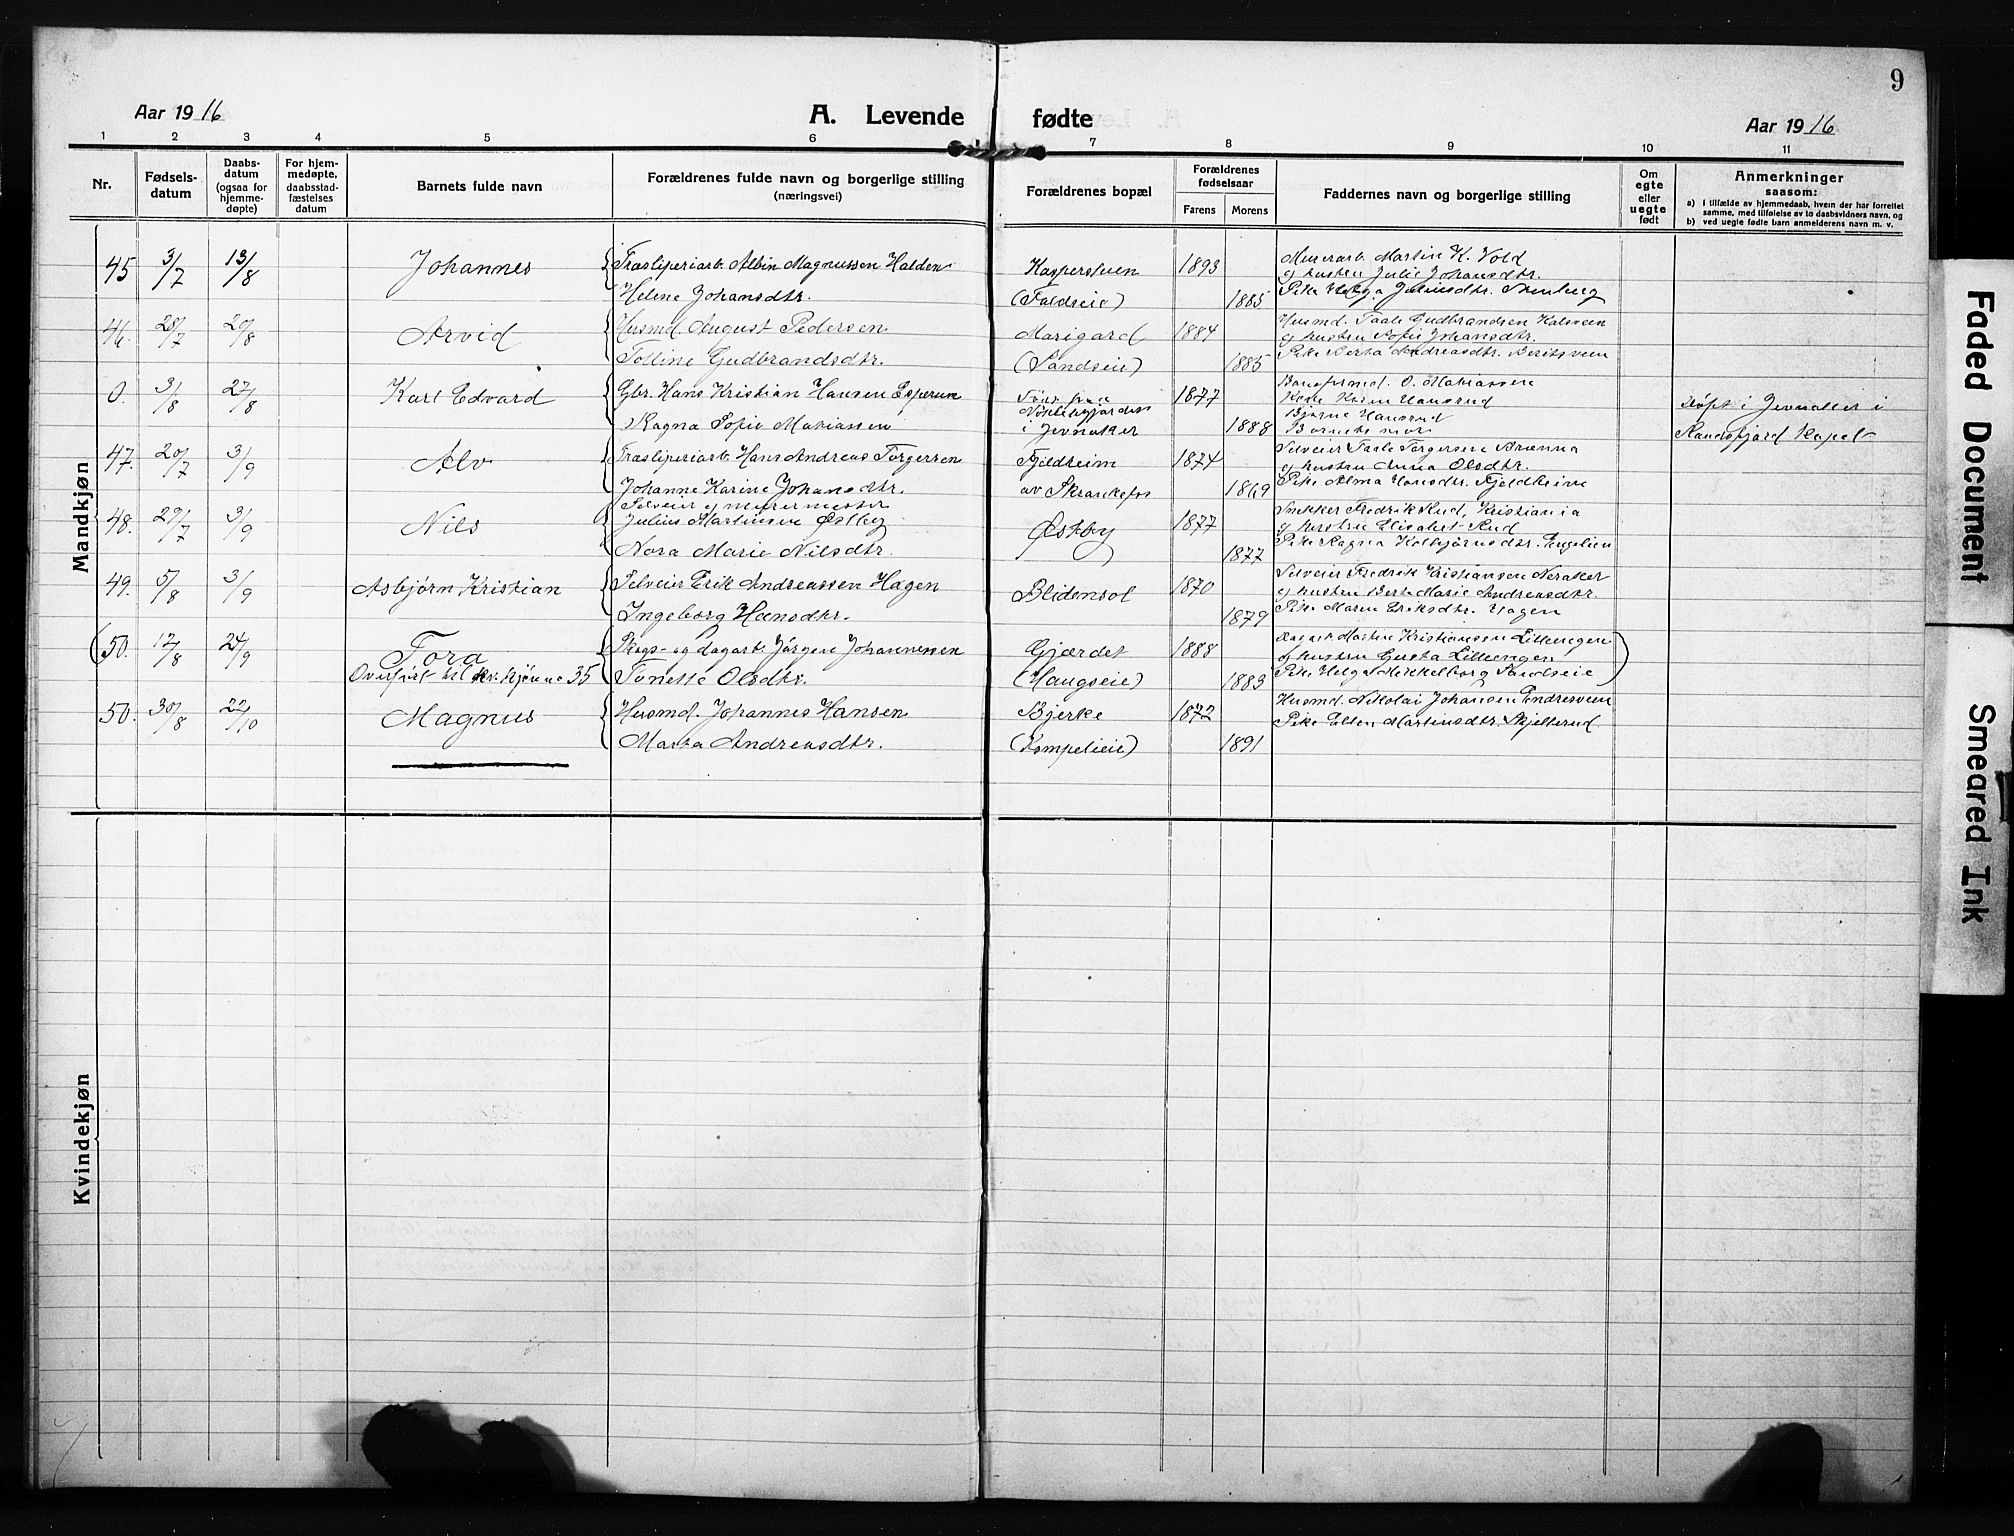 9
Aar 1916
A. Levende fødte
Aar 1916
1 2 3 4 5 6 7 8 9 10 11
Nr.
Fødsels-
datum
Daabs-
datum
(ogsaa for
hjemme-
døpte)
For hjem-
medøpte,
daabsstad-
fæstelses
datum
Barnets fulde navn
Forældrenes fulde navn og borgerlige stilling
(næringsvei)
Forældrenes bopæl
Forældrenes
fødselsaar
Farens Morens
Faddernes navn og borgerlige stilling
Om
egte
eller
uegte
født
Anmerkninger
saasom:
a) i tilfælde av hjemmedaab, hvem der har forrettet
samme, med tilføielse av to daabsvidners navn, og
b) ved uegte fødte barn anmelderens navn m. v.
Mandkjøn
45 3/7 13/8 Johannes Træsliperiarb. Albin Magnussen Halden Kaspersveen 1893 Murerarb. Martin H. Vold
og hustru Julie Johansdtr.
Helene Johansdtr. 1885 Pike Helga Juliusdtr. Stenberg
46. 28/7 20/8 Arvid Husmd. August Pedersen Marigard 1884 Husmd. Paale Gudbrandsen Kalsveen
og hustru Sofie Johansdtr.
Tolline Gudbrandsdtr. (Sandseie) 1885 Pike Berta Andreasdtr. Beritsveen
0. 3/8 27/8 Karl Edvard Gbr. Hans Kristian Hansen Esperum 1877 O. Matiassen
Karen Hansrud
Bjarne Hansrud
Ragna Sofie Matiassen i Jevnaker 1888 Barnets mor
Døpt i Jevnaker i
Randsfjord Kapel
47. 20/7 3/9 Alv Træsliperiarb. Hans Andreas Torgersen Fjeldheim 1874 Selveier Paale Torgersen Brænna
og hustru Anna Olsdtr.
Johanne Karine Johansdtr. av Skrankefos 1869 Pike Alma Hansdtr. Fjeldheim
48. 29/7 3/9 Nils Selveier og murermester
Julius Martinsen Østby Østby 1877 Snekker Fredrik Rud, Kristiania
og hustru Elisabet Rud
Nora Marie Nilsdtr. 1877 Pike Ragna Kolbjørnsdtr. Engelien
49. 5/8 3/9 Asbjørn Kristian Selveier Erik Andreassen Hagen Blidensol 1870 Selveier Fredrik Kristiansen Neraker
og hustru Berte Marie Andreasdtr.
Ingeborg Hansdtr. 1879 Pike Maren Eriksdtr. Hagen
(50. 12/8 24/9 Tora Skogs- og dagarb. Jørgen Johannessen Gjærdet 1888 Martin Kristiansen Lillengen
og hustru Gusta Lillengen
Overført til kv.kjønne 35 Tonette Olsdtr. (Haugseie) 1883 Pike Helga Mikkelborg Sandseie)
50. 30/8 22/10 Magnus Husmd. Johannes Hansen Bjerke 1872 Husmd. Nikolai Johansen Endresveen
Pike Ellen Martinsdtr. Skjellerud
Marta Andreasdtr. (Kompelieie) 1891
Kvindekjøn
Faded Document
Smeared Ink